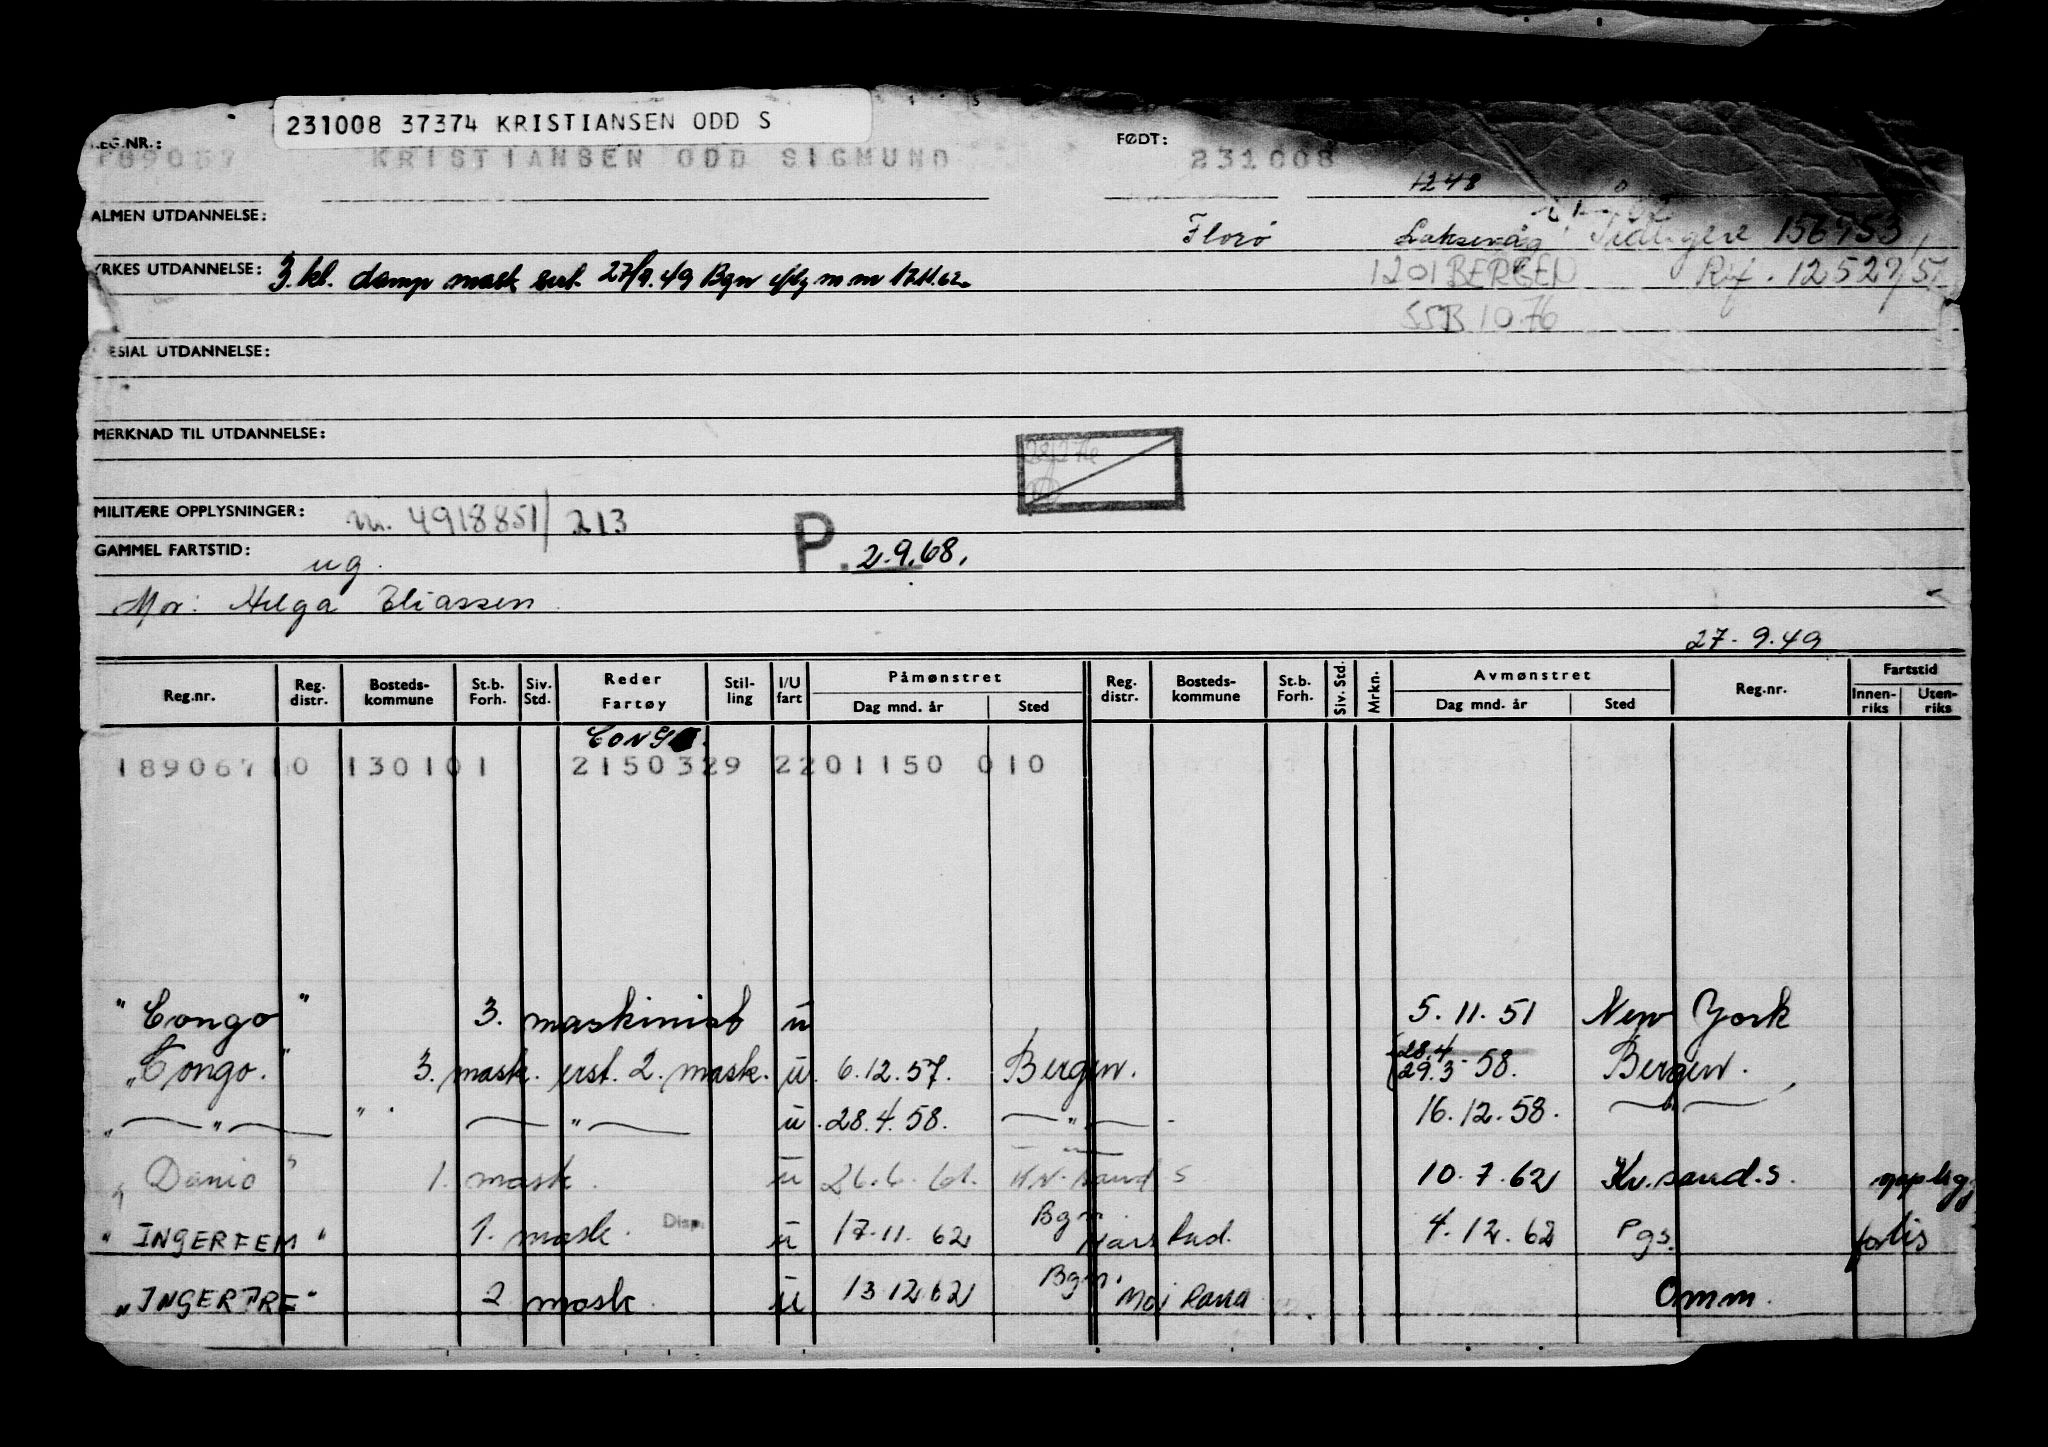 231008 37374 KRISTIANSEN ODD S
EG.NR.:
FØDT:
189067 KRISTIANSEN ODD SIGMUND 231008
1248
ALMEN UTDANNELSE:
Florø Laksevåg Tidligere 156953
YRKES UTDANNELSE: 3. kl. damp mask sert. 27/9.49 Bgn m m 17.11.62.
1201 BERGEN Rif. 12527/51
SSB 10.76
ESIAL UTDANNELSE:
MERKNAD TIL UTDANNELSE:
MILITÆRE OPPLYSNINGER: m. 4918851/213
GAMMEL FARTSTID: ug.
P. 2.9.68.
Mor: Helga Eliassen
27.9.49
Reg.nr. Reg. distr. Bosteds-kommune St.b. Forh. Siv. Std. Reder Fartøy Stil-ling I/U fart Påmønstret Dag mnd. år Sted Reg. distr. Bosteds-kommune St.b. Forh. Siv. Std. Mrkn. Avmønstret Dag mnd. år Sted Reg.nr. Fartstid Innen-riks Uten-riks
CONGO.
189067 10 130101 2150329 2201150 010
"Congo" 3. maskinist u 5.11.51 New York
"Congo." 3. mask. erst. 2. mask. u. 6.12.57. Bergen. 28.4 29.3-58. Bergen.
" " " u. 28.4.58. " 16.12.58. "
"Danio" 1. mask. u 26.6.61. Kr.sand S 10.7.62 Kr.sand.S. opplag
"INGERFEM" 1. mask. Disp. u 17.11.62 Bgn 4.12.62 Pgs. forlis
"INGERTRE" 2 mask. u 13.12.62 Bgn. Moi Rana Omm.